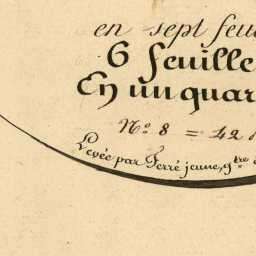 en sept feu
6 feuille
En un quar
N.º 8 = 42
Levée par Ferré jeune, g.tre